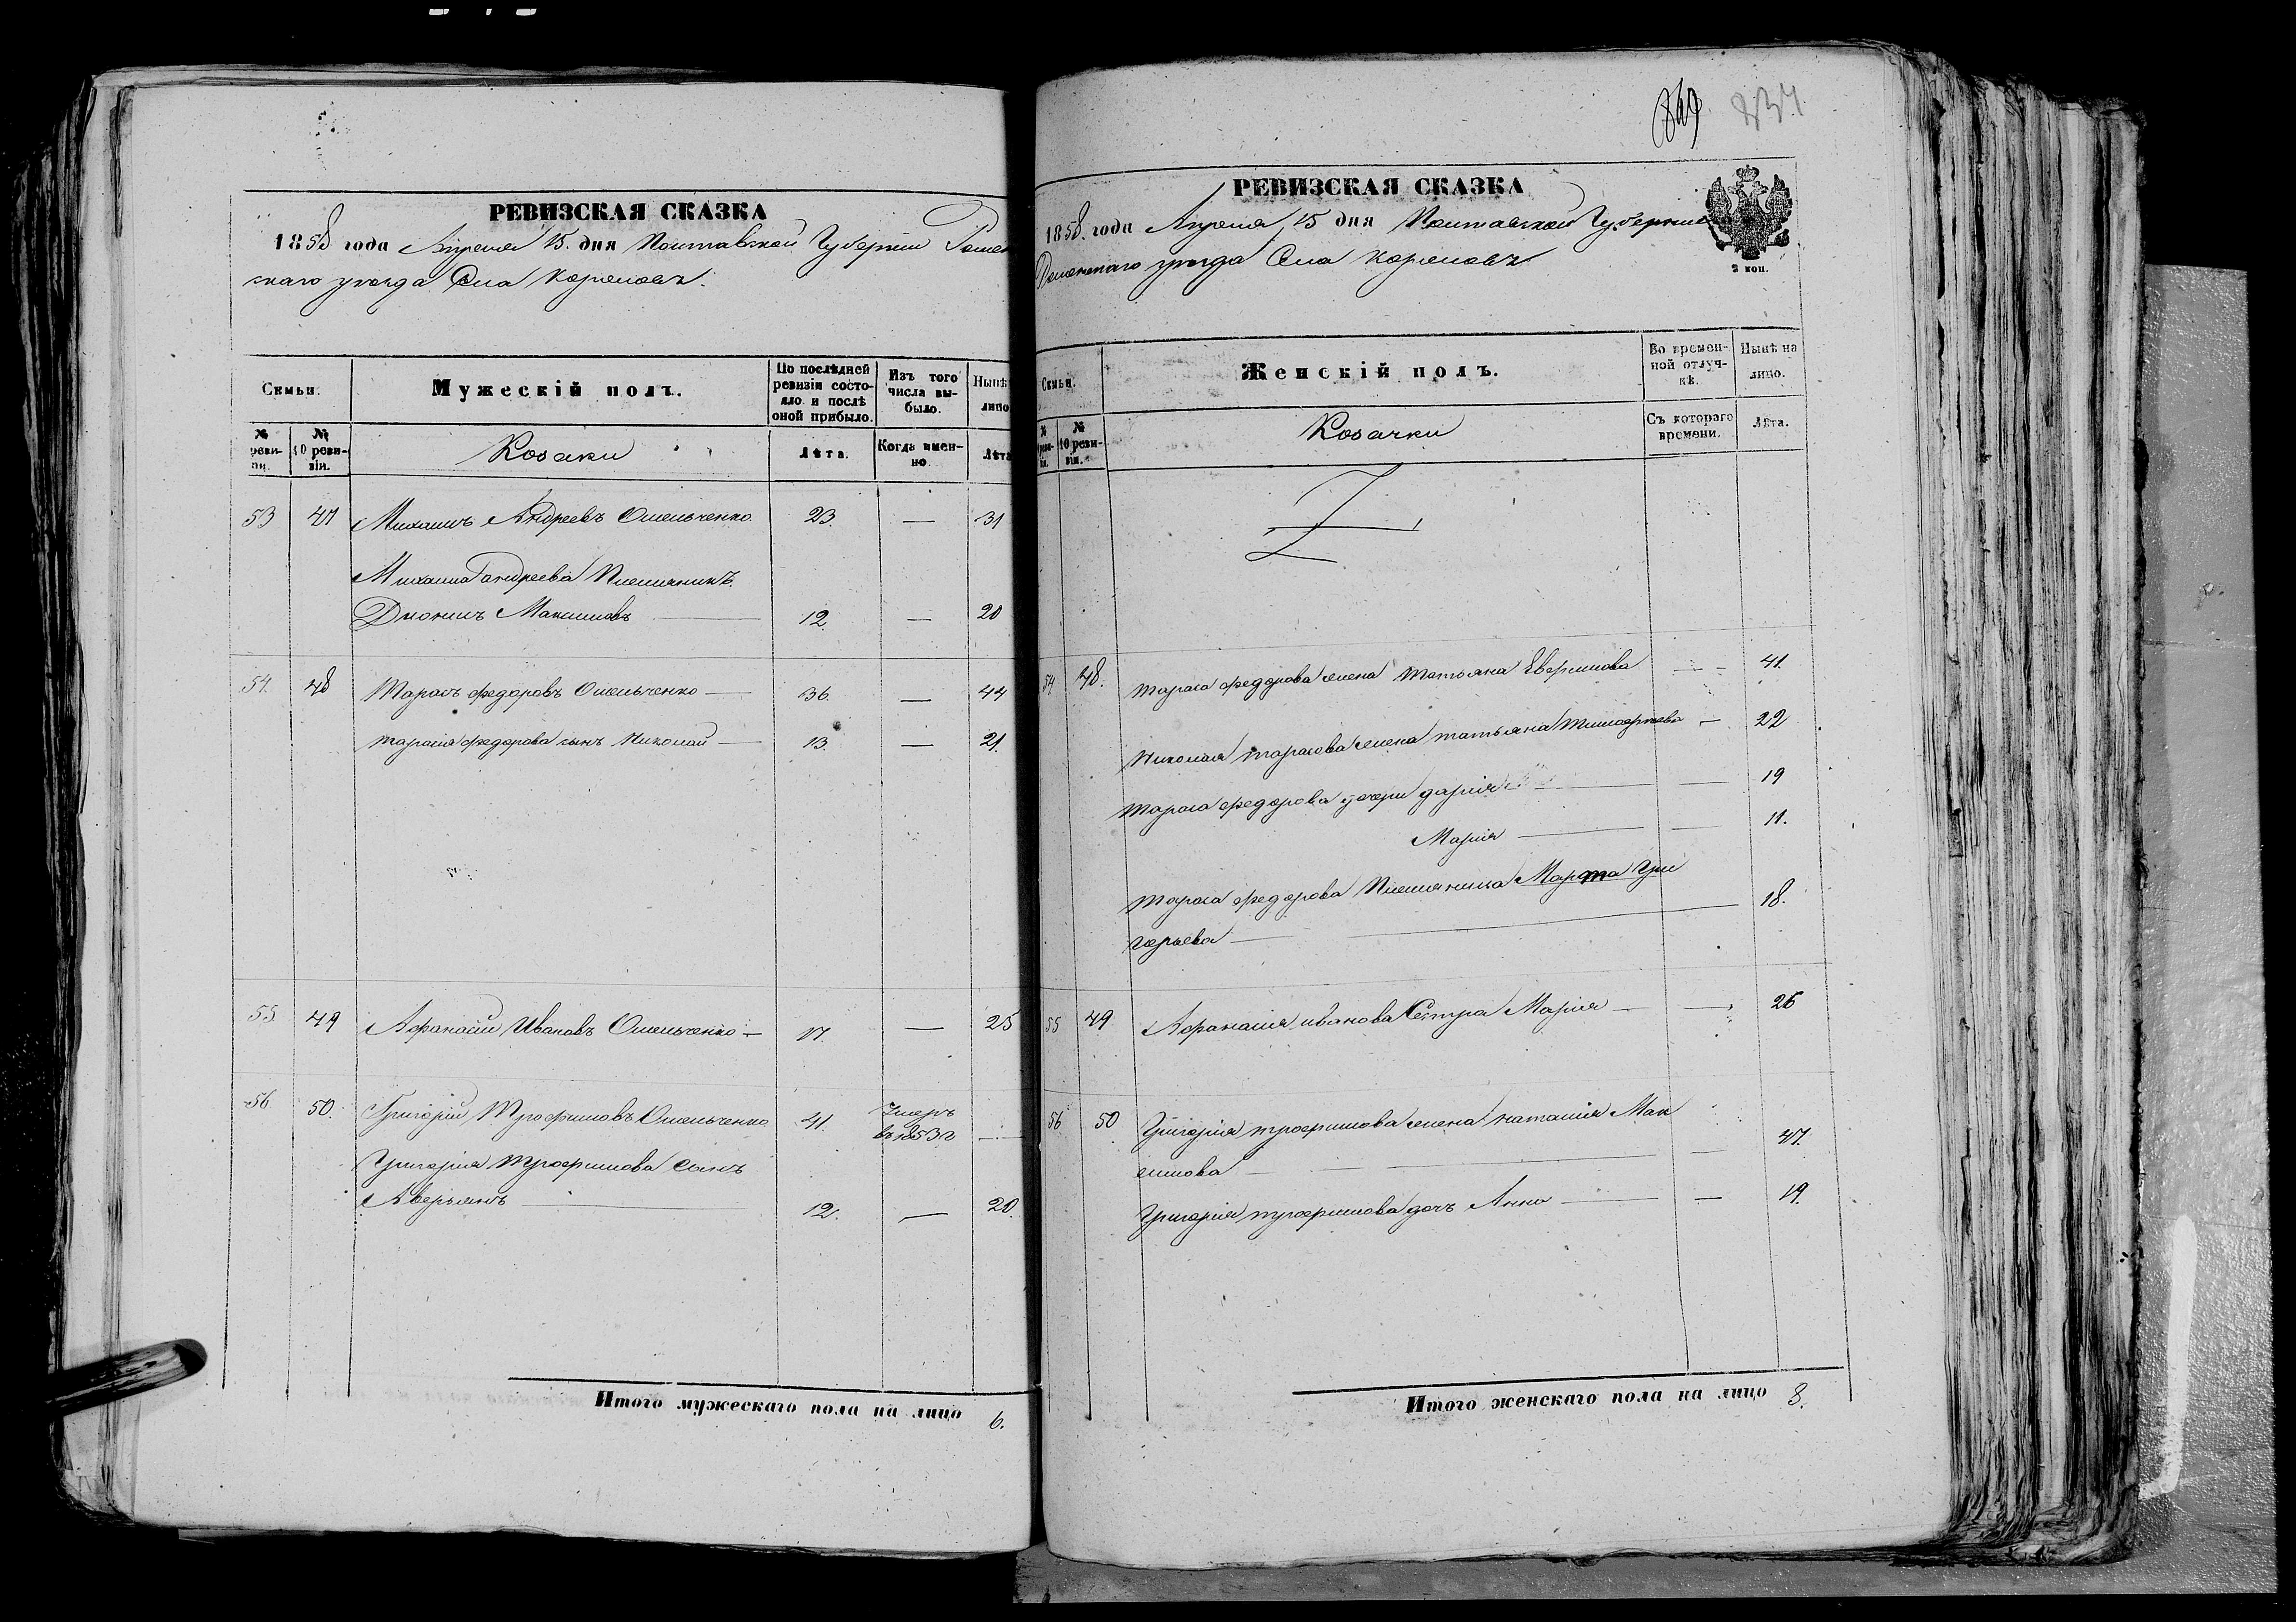 РЕВИЗСКАЯ СКАЗКА
1858 года Апреля 15. дня Полтавской Губернии Ромен
скаго уезда Села Кореновъ.
Семьи.
Мужескій полъ.
По послѣдней ревизіи состояло и послѣ оной прибыло.
Изъ того числа выбыло.
Нынѣ лицо
№ ревизіи.
№ 10 ревизіи.
Козаки
Лѣта.
Когда именно.
Лѣта
53 47 Михаилъ Андреевъ Омельченко 23. — 31
Михаила Андреева Племянникъ
Дионисъ Максимовъ — 12. — 20
54. 48 Тарасъ Федоровъ Омельченко — 36. — 44
Тараса Федорова сынъ Николай — 13. — 21.
55. 49 Афанасий Ивановъ Омельченко — 17. — 25
56 50. Григорій Трофимовъ Омельченко 41. Умеръ —
въ 1853 г
Григорія Трофимова Сынъ
Аверьянъ — 12. — 20.
Итого мужескаго пола на лицо 6.
849
РЕВИЗСКАЯ СКАЗКА
1858. года Апреля 15 дня Полтавской Губернии
Роменскаго уезда Села Кореновъ
3 коп.
Семьи.
Женскій полъ.
Во временной отлучкѣ.
Нынѣ на лицо.
№ 10 ревизіи.
Козачки
Съ котораго времени.
Лѣта.
54 48. Тараса Федорова жена Татьяна Ефримова — 41.
Николая Тарасова жена Татьяна Тимофеева — 22
Тараса Федорова дочери Дарія — — 19
Марія — — 11.
Тараса Федорова Племяница Марта Гри
горьева — 18.
55 49 Афанасія Иванова Сестра Марія — — 26
56 50 Григорія Трофимова жена Наталия Мак
симова — — 47.
Григорія Трофимова дочь Анна — — 19.
Итого женскаго пола на лицо 8.